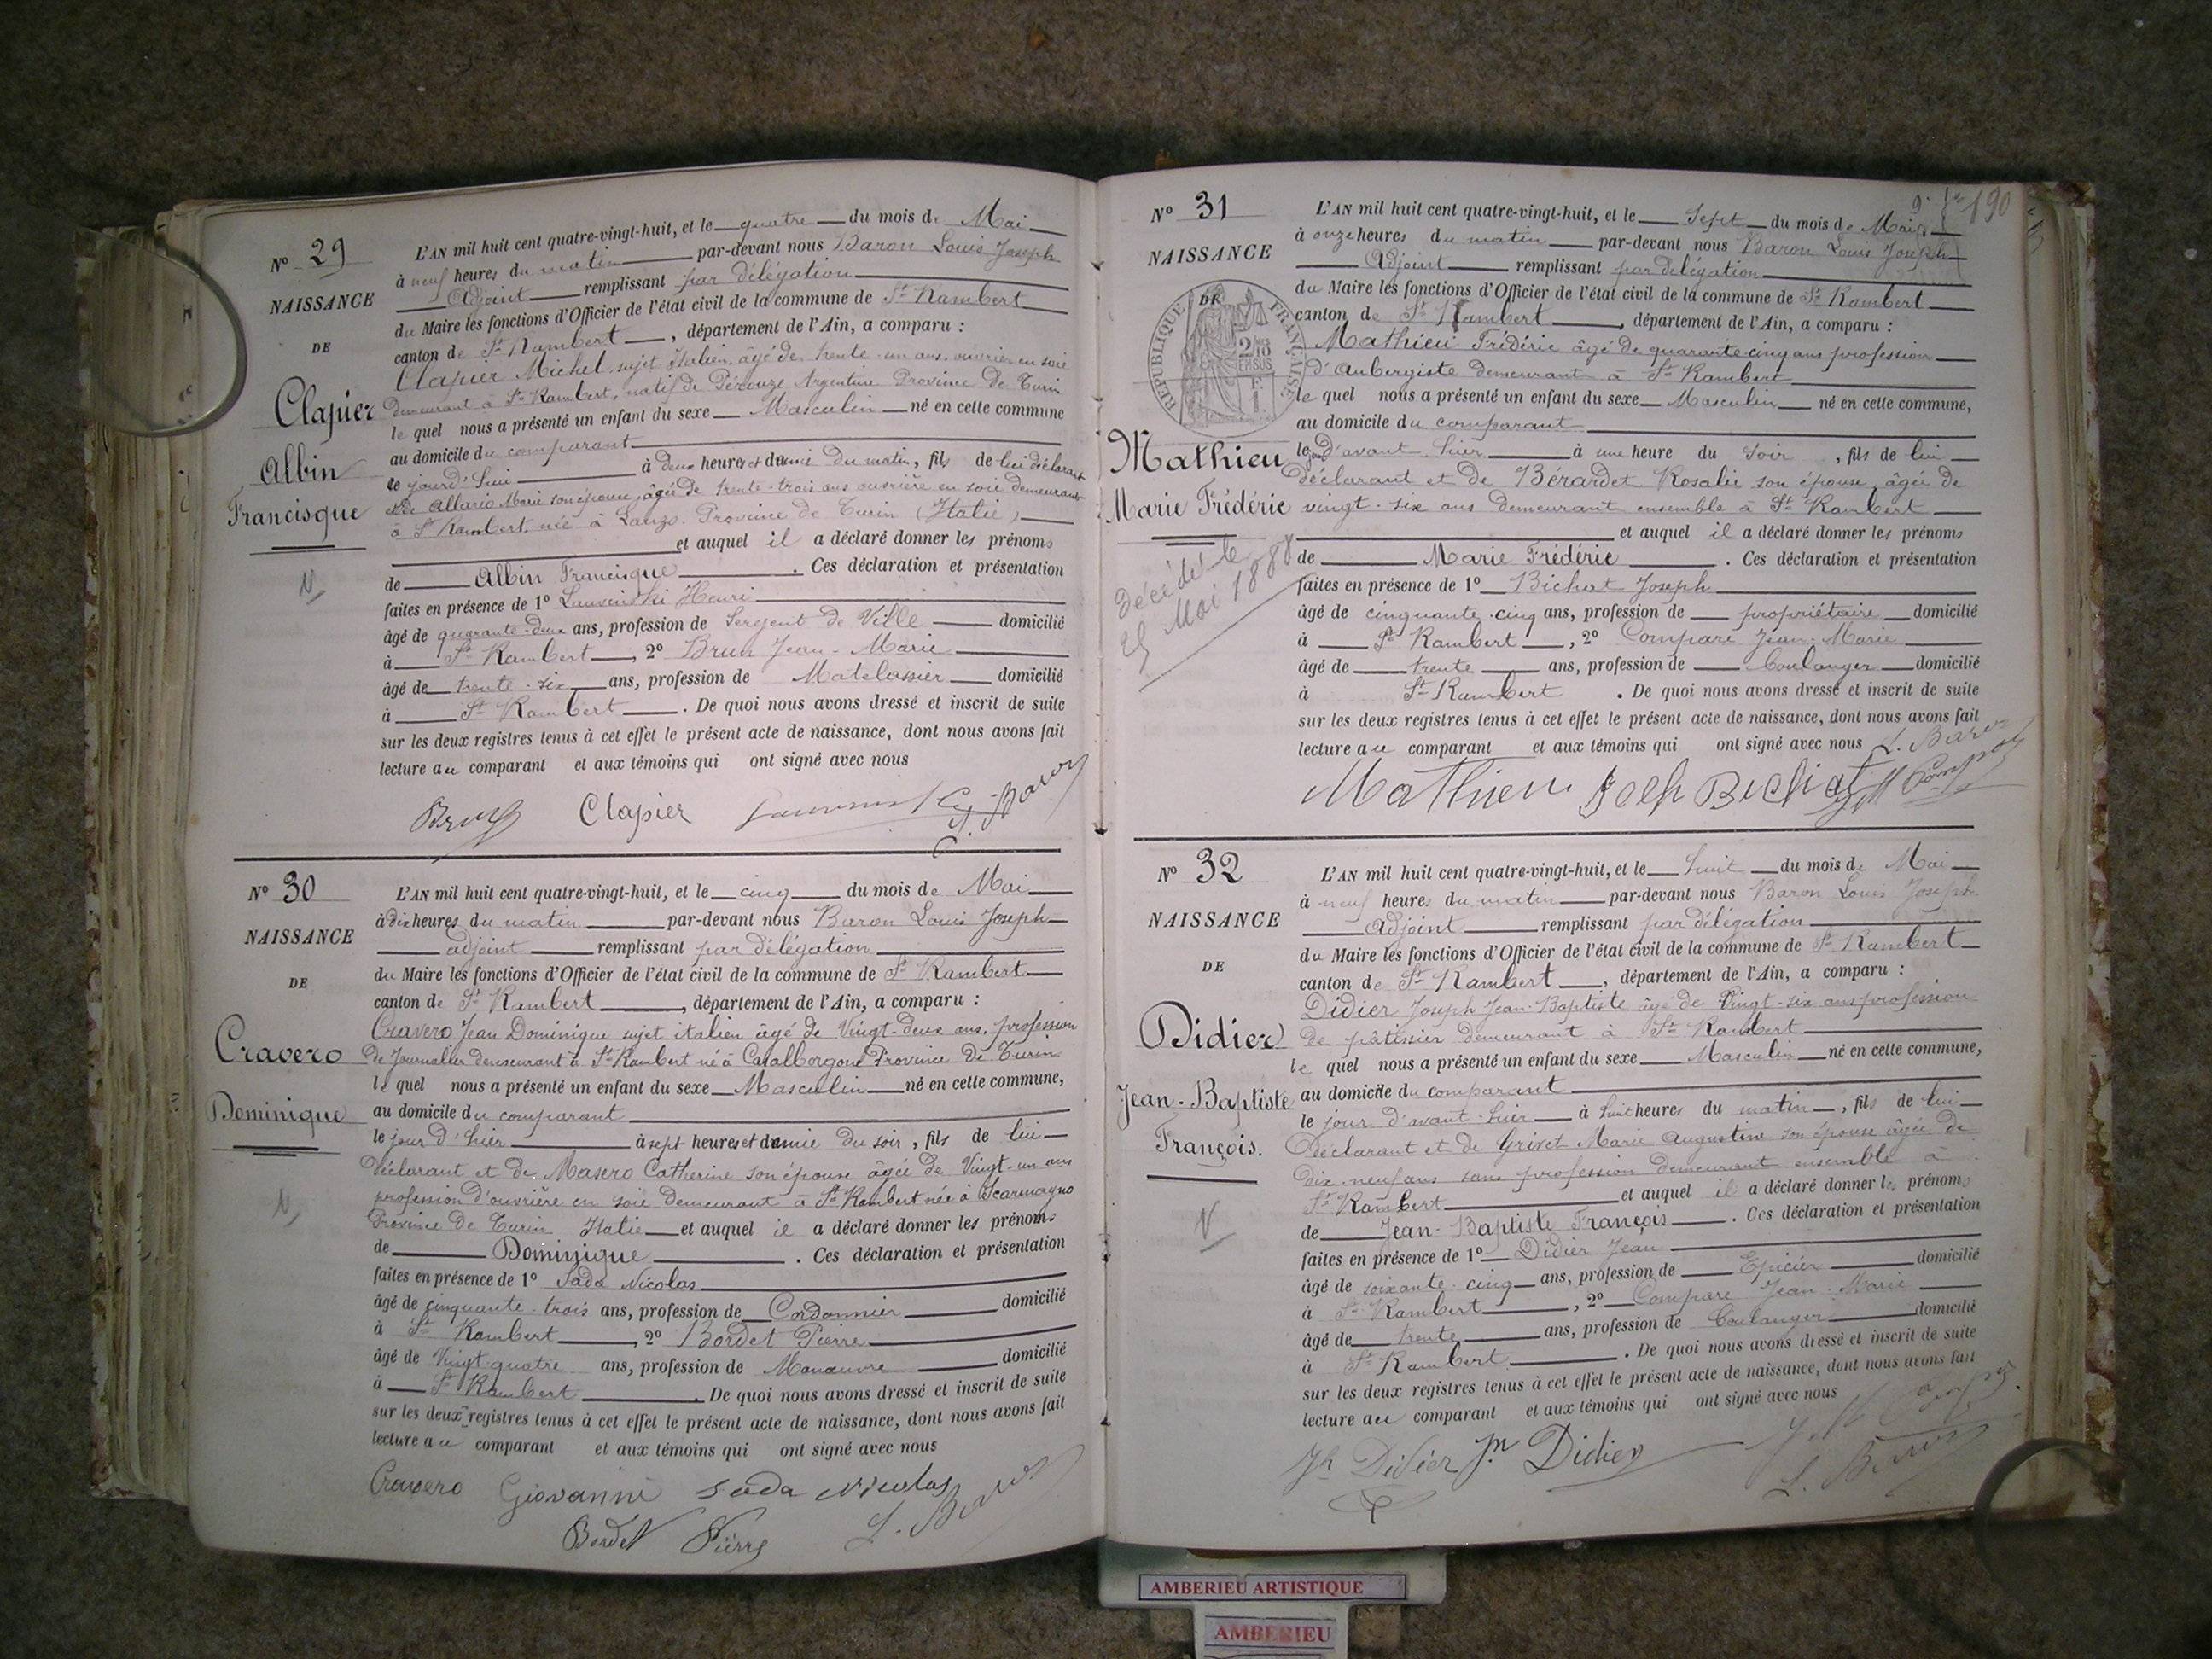 N° 29
NAISSANCE
DE
Clapier
Albin
Francisque
N
L'AN mil huit cent quatre-vingt-huit, et le quatre du mois de Mai
à neuf heures du matin par-devant nous Baron Louis Joseph
Adjoint remplissant par délégation
du Maire les fonctions d'Officier de l'état civil de la commune de St Rambert
canton de St Rambert, département de l'Ain, a comparu :
Clapier Michel sujet Italien, âgé de trente-un ans, ouvrier en soie
demeurant à St Rambert, natif de Argentine Province de Turin
le quel nous a présenté un enfant du sexe Masculin né en cette commune
au domicile du comparant
le jourd'hui à deux heures et demie du matin, fils de lui déclarant
et de Allario Marie son épouse, âgée de trente-trois ans ouvrière en soie demeurant
à St Rambert, née à Lanzo Province de Turin (Italie)
et auquel il a déclaré donner les prénoms
de Albin Francisque. Ces déclaration et présentation
faites en présence de 1° Henri
âgé de quarante-deux ans, profession de Sergent de Ville domicilié
à St Rambert, 2° Brun Jean-Marie
âgé de trente-six ans, profession de Matelassier domicilié
à St Rambert. De quoi nous avons dressé et inscrit de suite
sur les deux registres tenus à cet effet le présent acte de naissance, dont nous avons fait
lecture au comparant et aux témoins qui ont signé avec nous
Brun Clapier L. Baron
N° 30
NAISSANCE
DE
Cravero
Dominique
N
L'AN mil huit cent quatre-vingt-huit, et le cinq du mois de Mai
à dix heures du matin par-devant nous Baron Louis Joseph
adjoint remplissant par délégation
du Maire les fonctions d'Officier de l'état civil de la commune de St Rambert
canton de St Rambert, département de l'Ain, a comparu :
Cravero Jean Dominique sujet italien âgé de Vingt-deux ans, profession
de Journalier demeurant à St Rambert né à Casalborgone Province de Turin
le quel nous a présenté un enfant du sexe Masculin né en cette commune,
au domicile du comparant
le jour d'hier à sept heures et demie du soir, fils de lui
déclarant et de Masero Catherine son épouse âgée de Vingt-un ans
profession d'ouvrière en soie demeurant à St Rambert née à Scarmagno
Province de Turin Italie et auquel il a déclaré donner les prénoms
de Dominique. Ces déclaration et présentation
faites en présence de 1° Sada Nicolas
âgé de cinquante-trois ans, profession de Cordonnier domicilié
à St Rambert, 2° Bordet Pierre
âgé de Vingt-quatre ans, profession de Manœuvre domicilié
à St Rambert. De quoi nous avons dressé et inscrit de suite
sur les deux registres tenus à cet effet le présent acte de naissance, dont nous avons fait
lecture au comparant et aux témoins qui ont signé avec nous
Cravero Giovanni Sada Nicolas
Bordet Pierre L. Baron
190
N° 31
NAISSANCE
DE
RÉPUBLIQUE FRANÇAISE
Mathieu
Marie Frédéric
Décédé le
25 Mai 1888
L'AN mil huit cent quatre-vingt-huit, et le Sept du mois de Mai
à onze heures du matin par-devant nous Baron Louis Joseph
Adjoint remplissant par délégation
du Maire les fonctions d'Officier de l'état civil de la commune de St Rambert
canton de St Rambert, département de l'Ain, a comparu :
Mathieu Frédéric âgé de quarante-cinq ans profession
d'Aubergiste demeurant à St Rambert
le quel nous a présenté un enfant du sexe Masculin né en cette commune,
au domicile du comparant
le jour d'avant-hier à une heure du soir, fils de lui
déclarant et de Bérardet Rosalie son épouse âgée de
vingt-six ans demeurant ensemble à St Rambert
et auquel il a déclaré donner les prénoms
de Marie Frédéric. Ces déclaration et présentation
faites en présence de 1° Bichat Joseph
âgé de cinquante-cinq ans, profession de propriétaire domicilié
à St Rambert, 2° Compare Jean-Marie
âgé de trente ans, profession de boulanger domicilié
à St Rambert. De quoi nous avons dressé et inscrit de suite
sur les deux registres tenus à cet effet le présent acte de naissance, dont nous avons fait
lecture au comparant et aux témoins qui ont signé avec nous L. Baron
Mathieu Joseph Bichat
N° 32
NAISSANCE
DE
Didier
Jean-Baptiste
François.
N
L'AN mil huit cent quatre-vingt-huit, et le huit du mois de Mai
à neuf heures du matin par-devant nous Baron Louis Joseph
Adjoint remplissant par délégation
du Maire les fonctions d'Officier de l'état civil de la commune de St Rambert
canton de St Rambert, département de l'Ain, a comparu :
Didier Joseph Jean-Baptiste âgé de Vingt-six ans profession
de pâtissier demeurant à St Rambert
le quel nous a présenté un enfant du sexe Masculin né en cette commune,
au domicile du comparant
le jour d'avant-hier à huit heures du matin, fils de lui
Déclarant et de Grivet Marie Augustine son épouse âgée de
dix neuf ans sans profession demeurant ensemble à
St Rambert et auquel il a déclaré donner les prénoms
de Jean-Baptiste François. Ces déclaration et présentation
faites en présence de 1° Didier Jean
âgé de soixante-cinq ans, profession de Epicier domicilié
à St Rambert, 2° Compare Jean-Marie
âgé de trente ans, profession de boulanger domicilié
à St Rambert. De quoi nous avons dressé et inscrit de suite
sur les deux registres tenus à cet effet le présent acte de naissance, dont nous avons fait
lecture au comparant et aux témoins qui ont signé avec nous
Jh Didier Jn Didier
L. Baron
AMBERIEU ARTISTIQUE
AMBERIEU